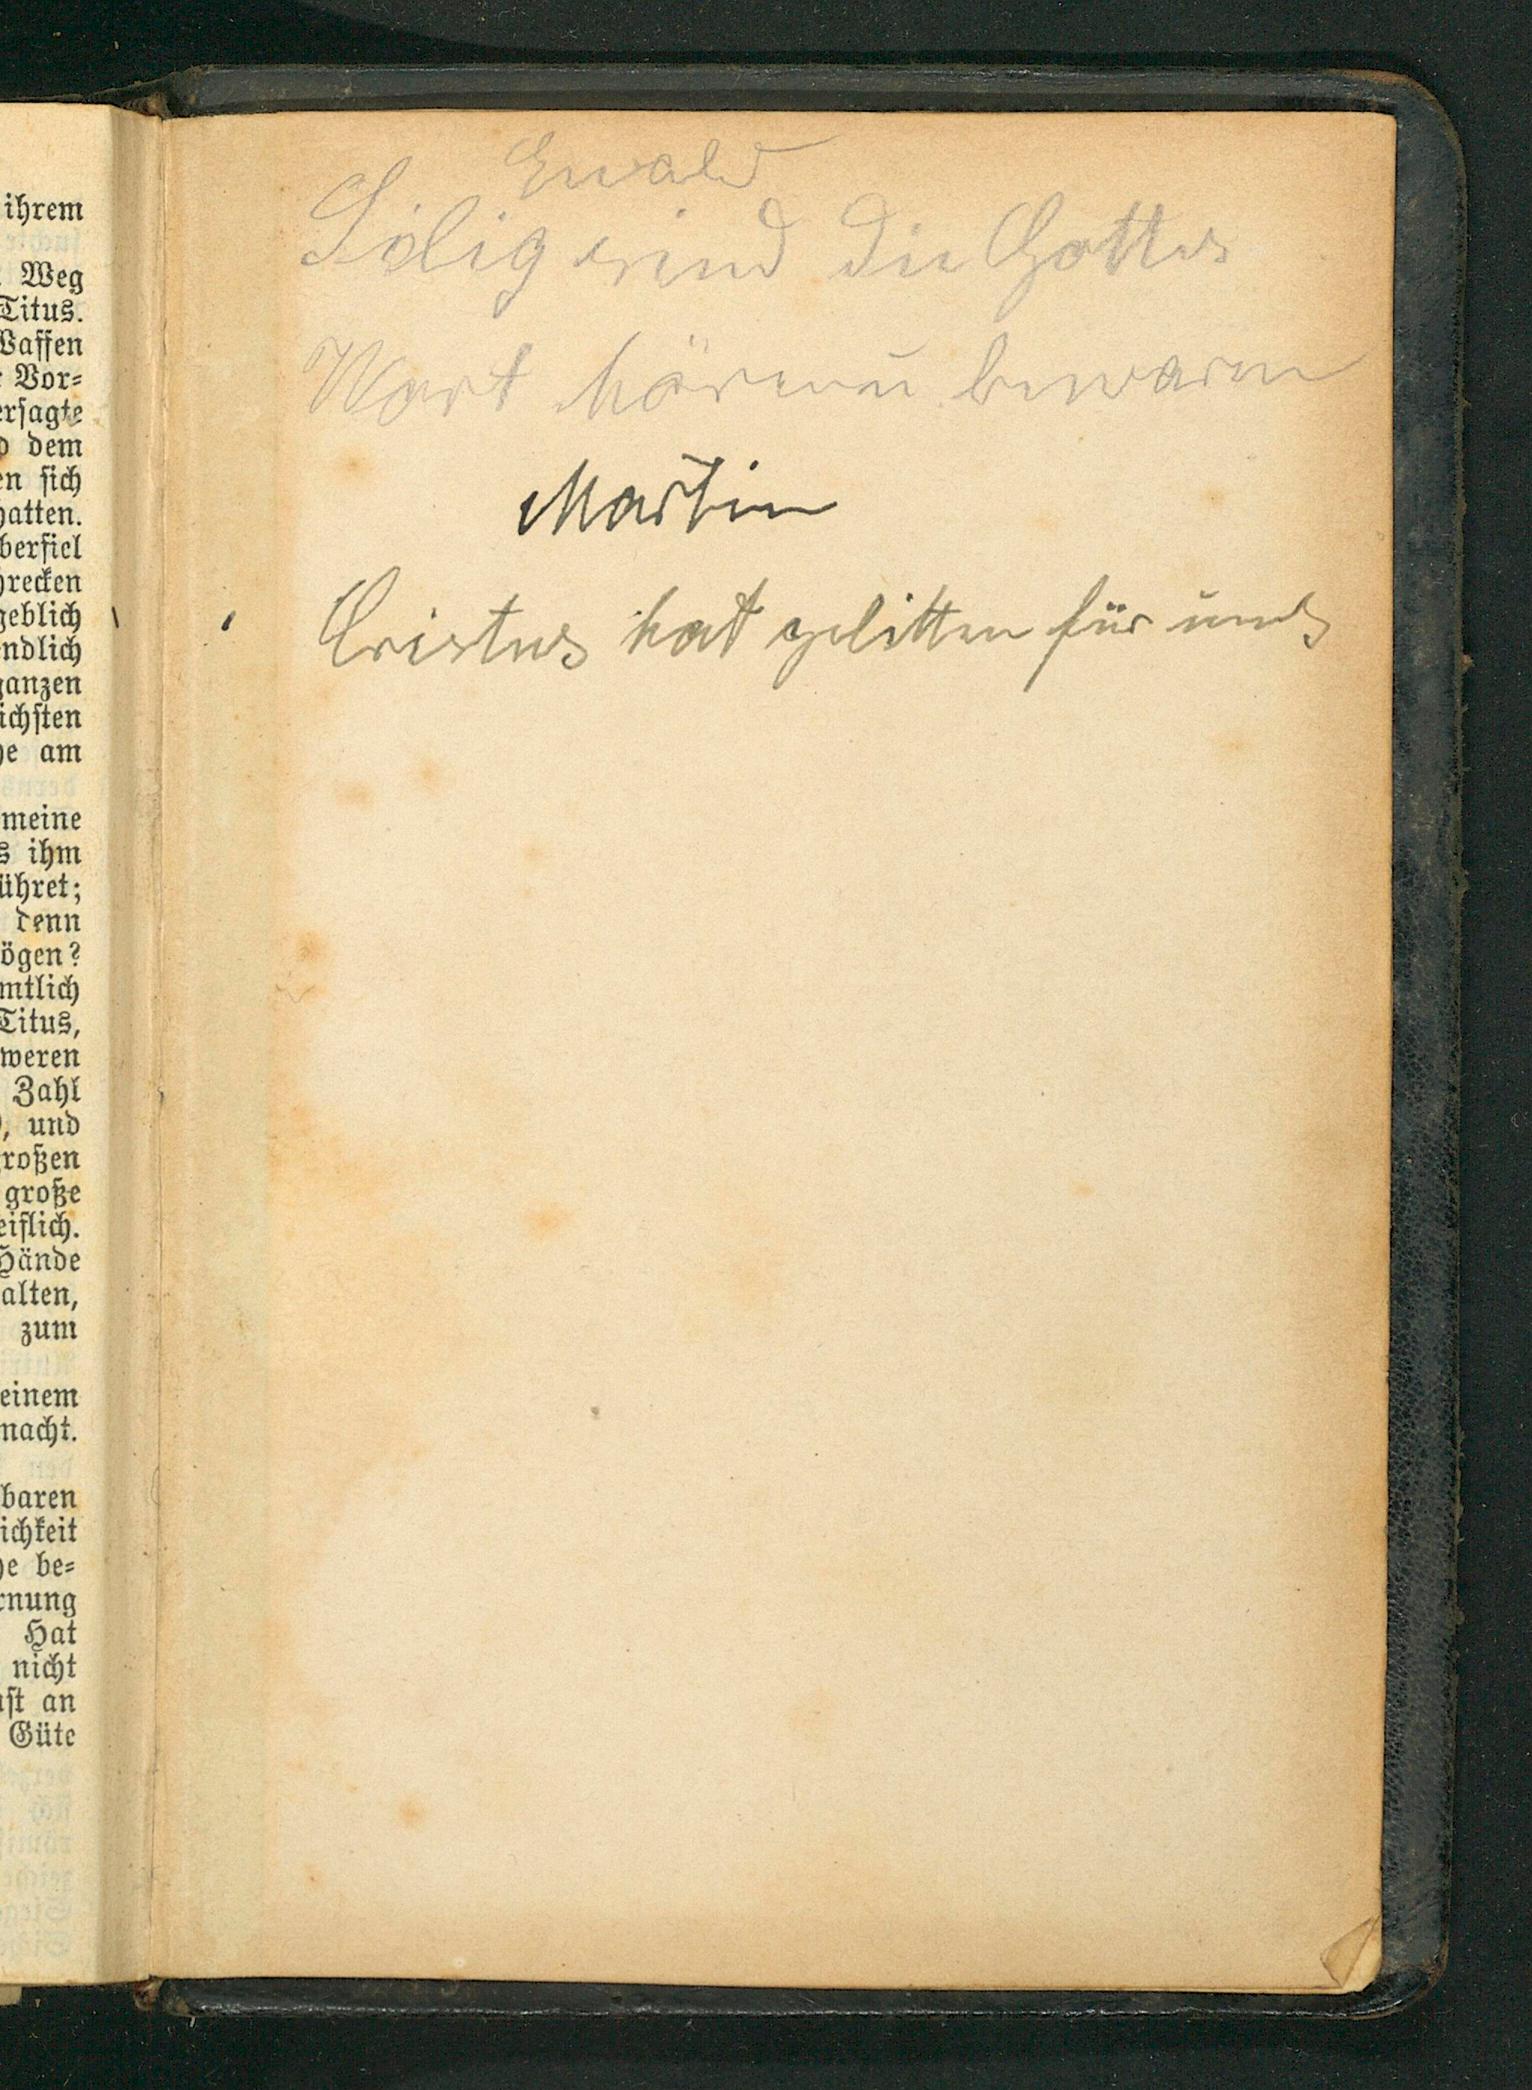 ihrem
Weg
Titus.
Waffen
Vor=
ersagte
dem
en sich
hatten.
berfiel
hrecken
geblich
ndlich
ganzen
ichsten
he am
meine
s ihm
ühret;
denn
ögen?
mtlich
Titus,
weren
Zahl
, und
roßen
große
eiflich.
Hände
alten,
zum
einem
nacht.
baren
ichkeit
he be=
rnung
Hat
nicht
nst an
Güte
Ewald
Selig sind die Gottes
Wort hören u bewaren
Martin
Cristus hat gelitten für uns